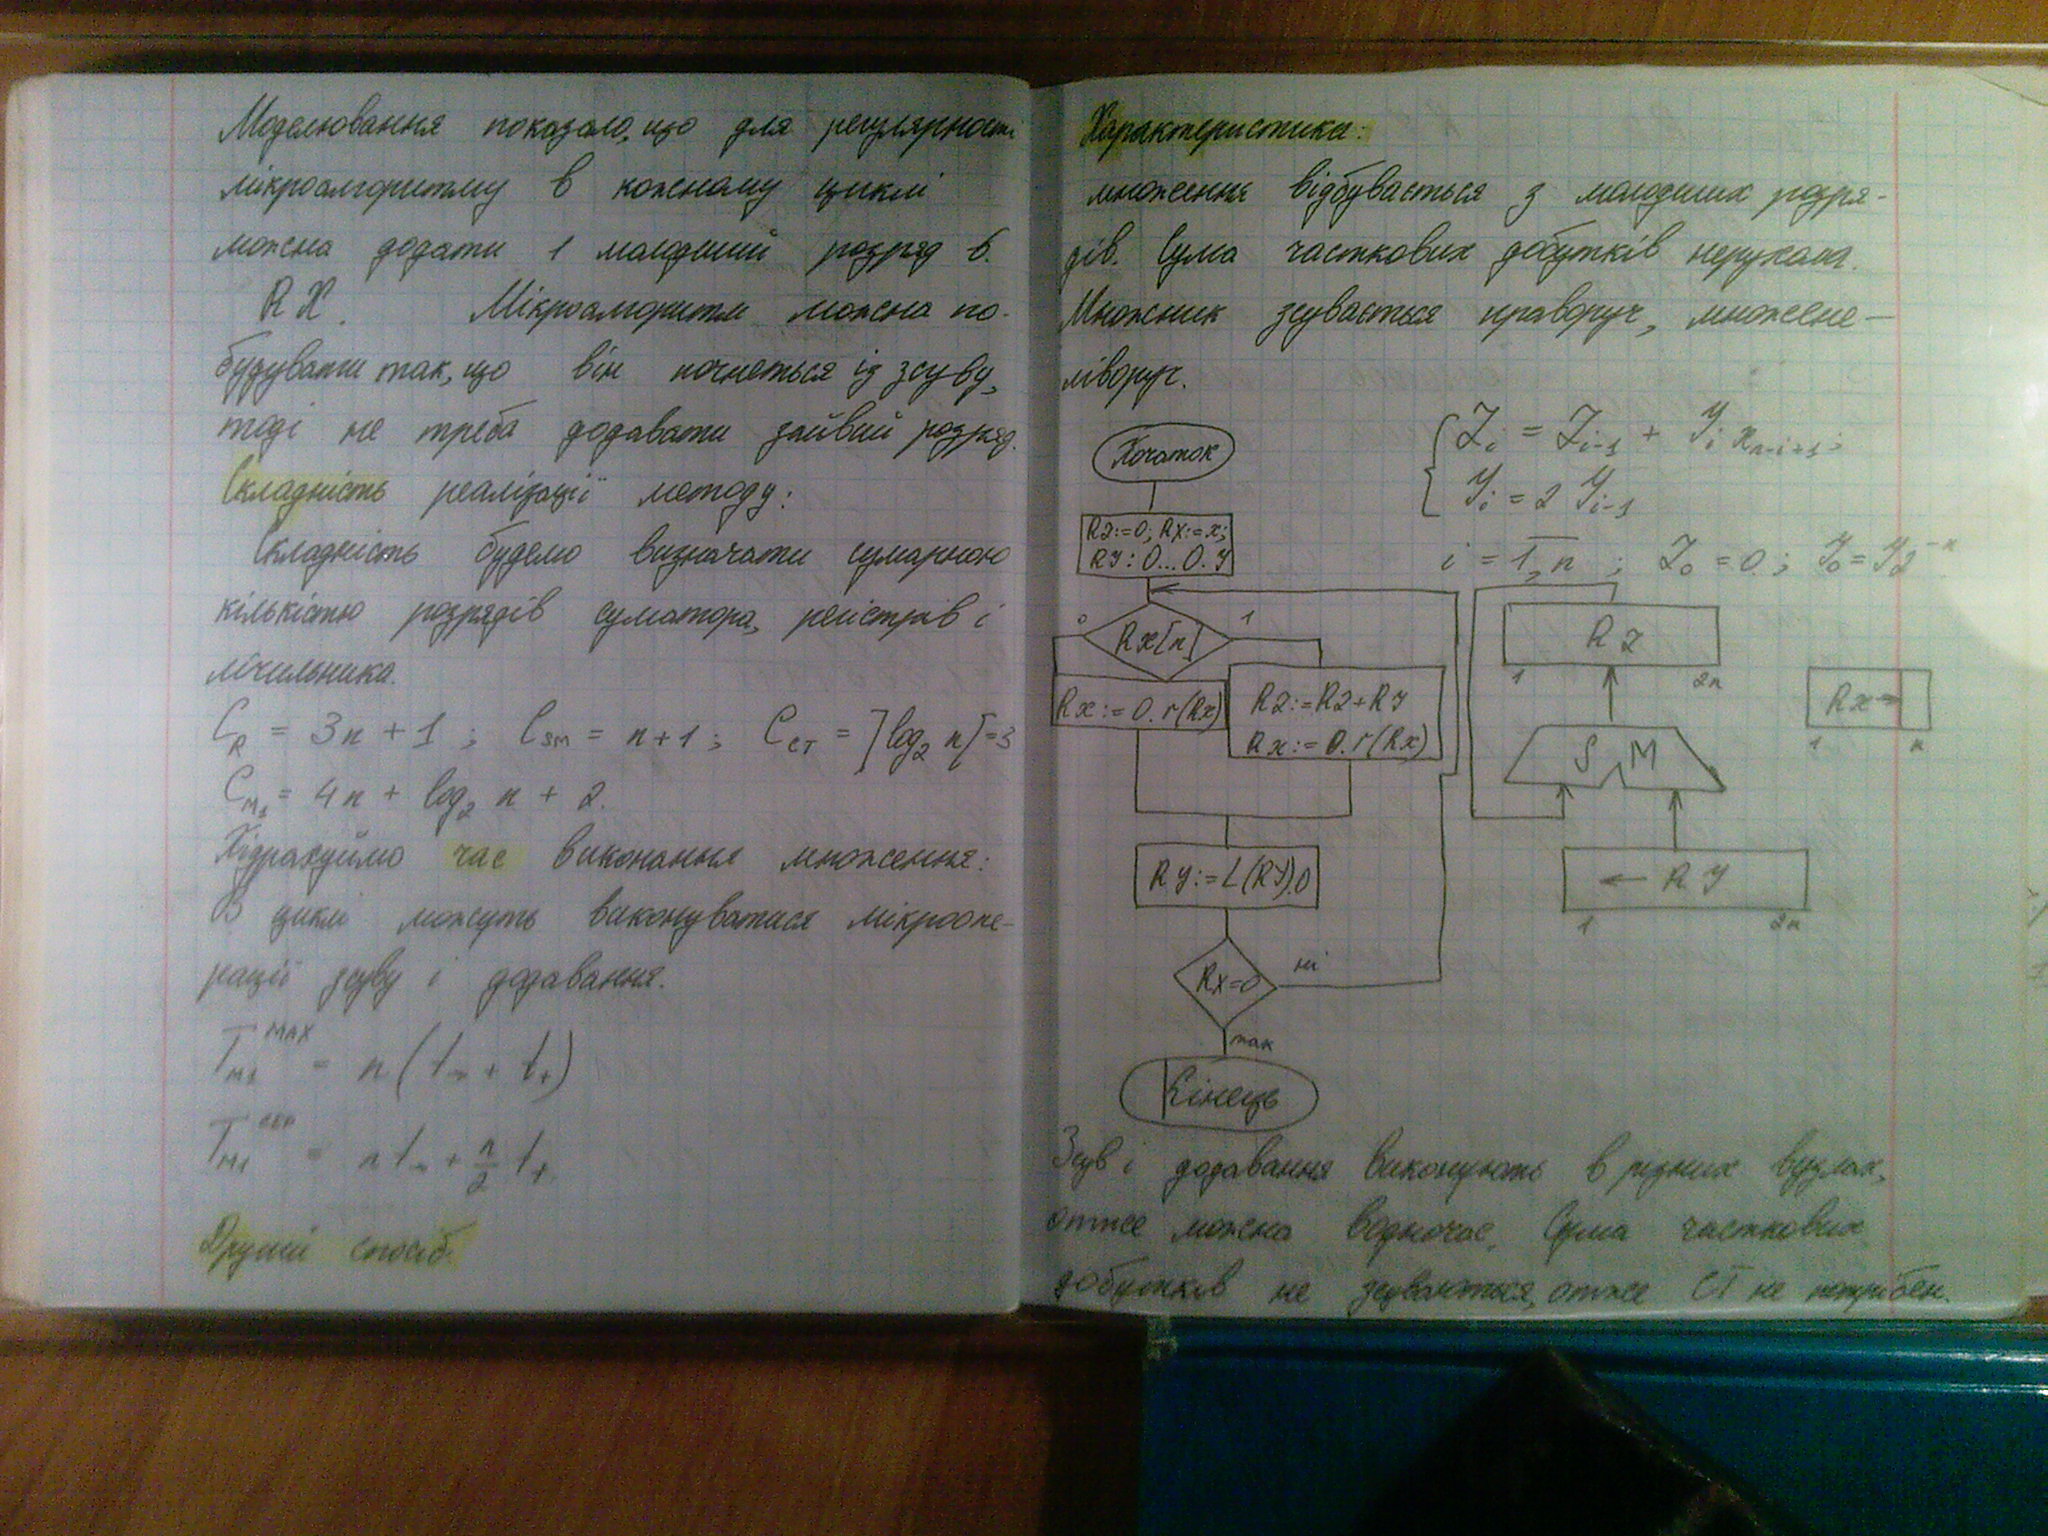 Моделювання показало, що для регулярності
мікроалгоритму в кожному циклі
можна додати 1 молодший розряд в
RX. Мікроалгоритм можна по-
будувати так, що він почнеться із зсуву,
тоді не треба додавати зайвий розряд.
Складність реалізації методу:
Складність будемо визначати сумарною
кількістю розрядів суматора, регістрів і
лічильника.
C_R = 3n + 1 ; C_SM = n+1 ; C_CT = ]log₂ n[ = 3
C_M1 = 4n + log₂ n + 2.
Підрахуймо час виконання множення:
В циклі можуть виконуватися мікроопе-
рації зсуву і додавання.
T_M1^MAX = n(t→ + t+)
T_M1^сер = n t→ + n/2 t+
Другий спосіб.
Характеристика:
множення відбувається з молодших розря-
дів. Сума часткових добутків нерухома.
Множник зсувається праворуч, множене —
ліворуч.
Z_i = Z_{i-1} + Y_i x_{n-i+1};
Y_i = 2 Y_{i-1}
i = 1, n ; Z_0 = 0 ; Y_0 = Y2^{-n}
Початок
RZ:=0; RX:=x;
RY: 0...0.Y
0 RX[n] 1
RX:=0.r(RX)
RZ:=RZ+RY
RX:=0.r(RX)
RY:=L(RY).0
RX=0
ні
так
Кінець
RZ
1 2n
RX →
1 n
SM
← RY
1 2n
Зсув і додавання виконують в різних вузлах,
отже можна водночас. Сума часткових
добутків не зсуваються, отже CT не потрібен.